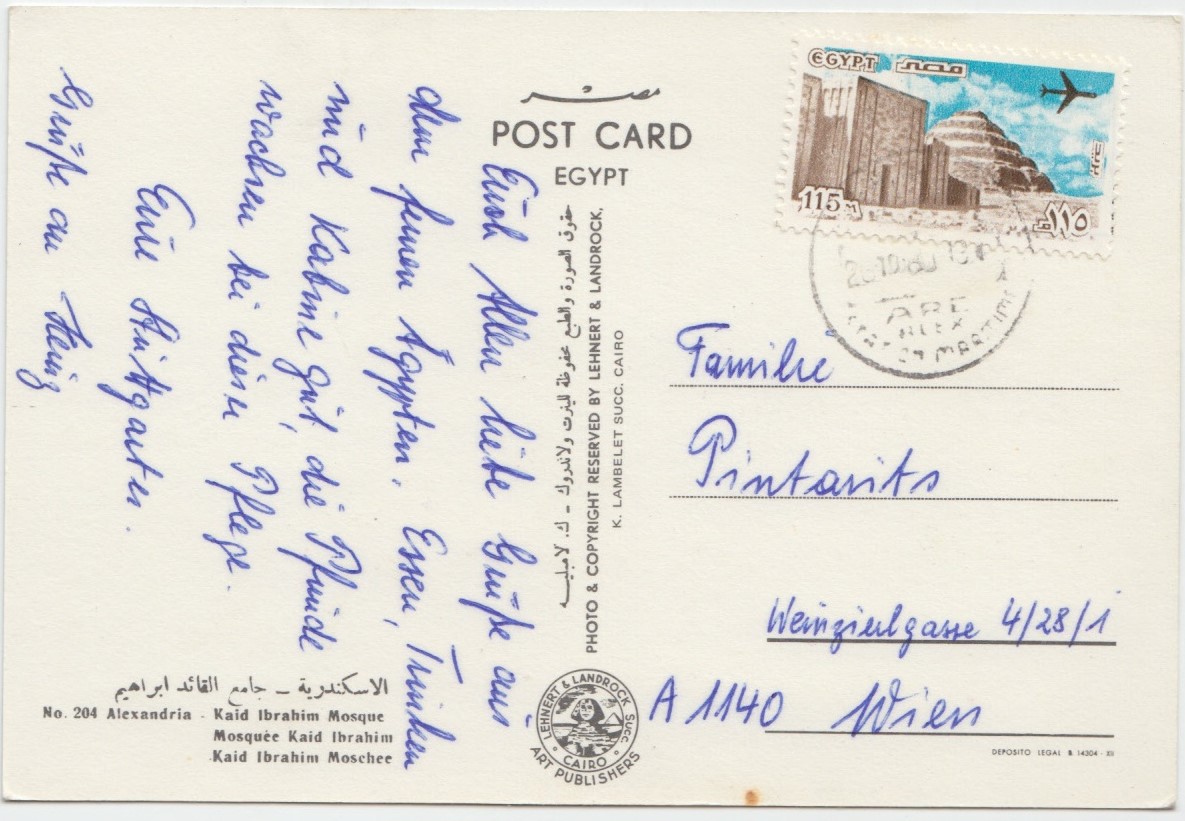 مصر
POST CARD
EGYPT
Euch Allen liebe Grüße aus
dem fernen Ägypten. Essen, Trinken
und Kabine gut, die Pfunde
wachsen bei dieser Pflege.
Eure Stuttgarter.
Grüße an Heinz
حقوق الصورة والطبع محفوظة للينرت ولاندروك - ك. لامبليه
PHOTO & COPYRIGHT RESERVED BY LEHNERT & LANDROCK,
K. LAMBELET SUCC. CAIRO
EGYPT مصر
115M ١١٥م
ARE
ALEX
Familie
Pintarits
Weinzierlgasse 4/28/1
A 1140 Wien
الاسكندرية - جامع القائد ابراهيم
No. 204 Alexandria - Kaid Ibrahim Mosque
Mosquée Kaid Ibrahim
Kaid Ibrahim Moschee
LEHNERT & LANDROCK SUCC.
CAIRO
ART PUBLISHERS
DEPOSITO LEGAL B. 14304 - XII